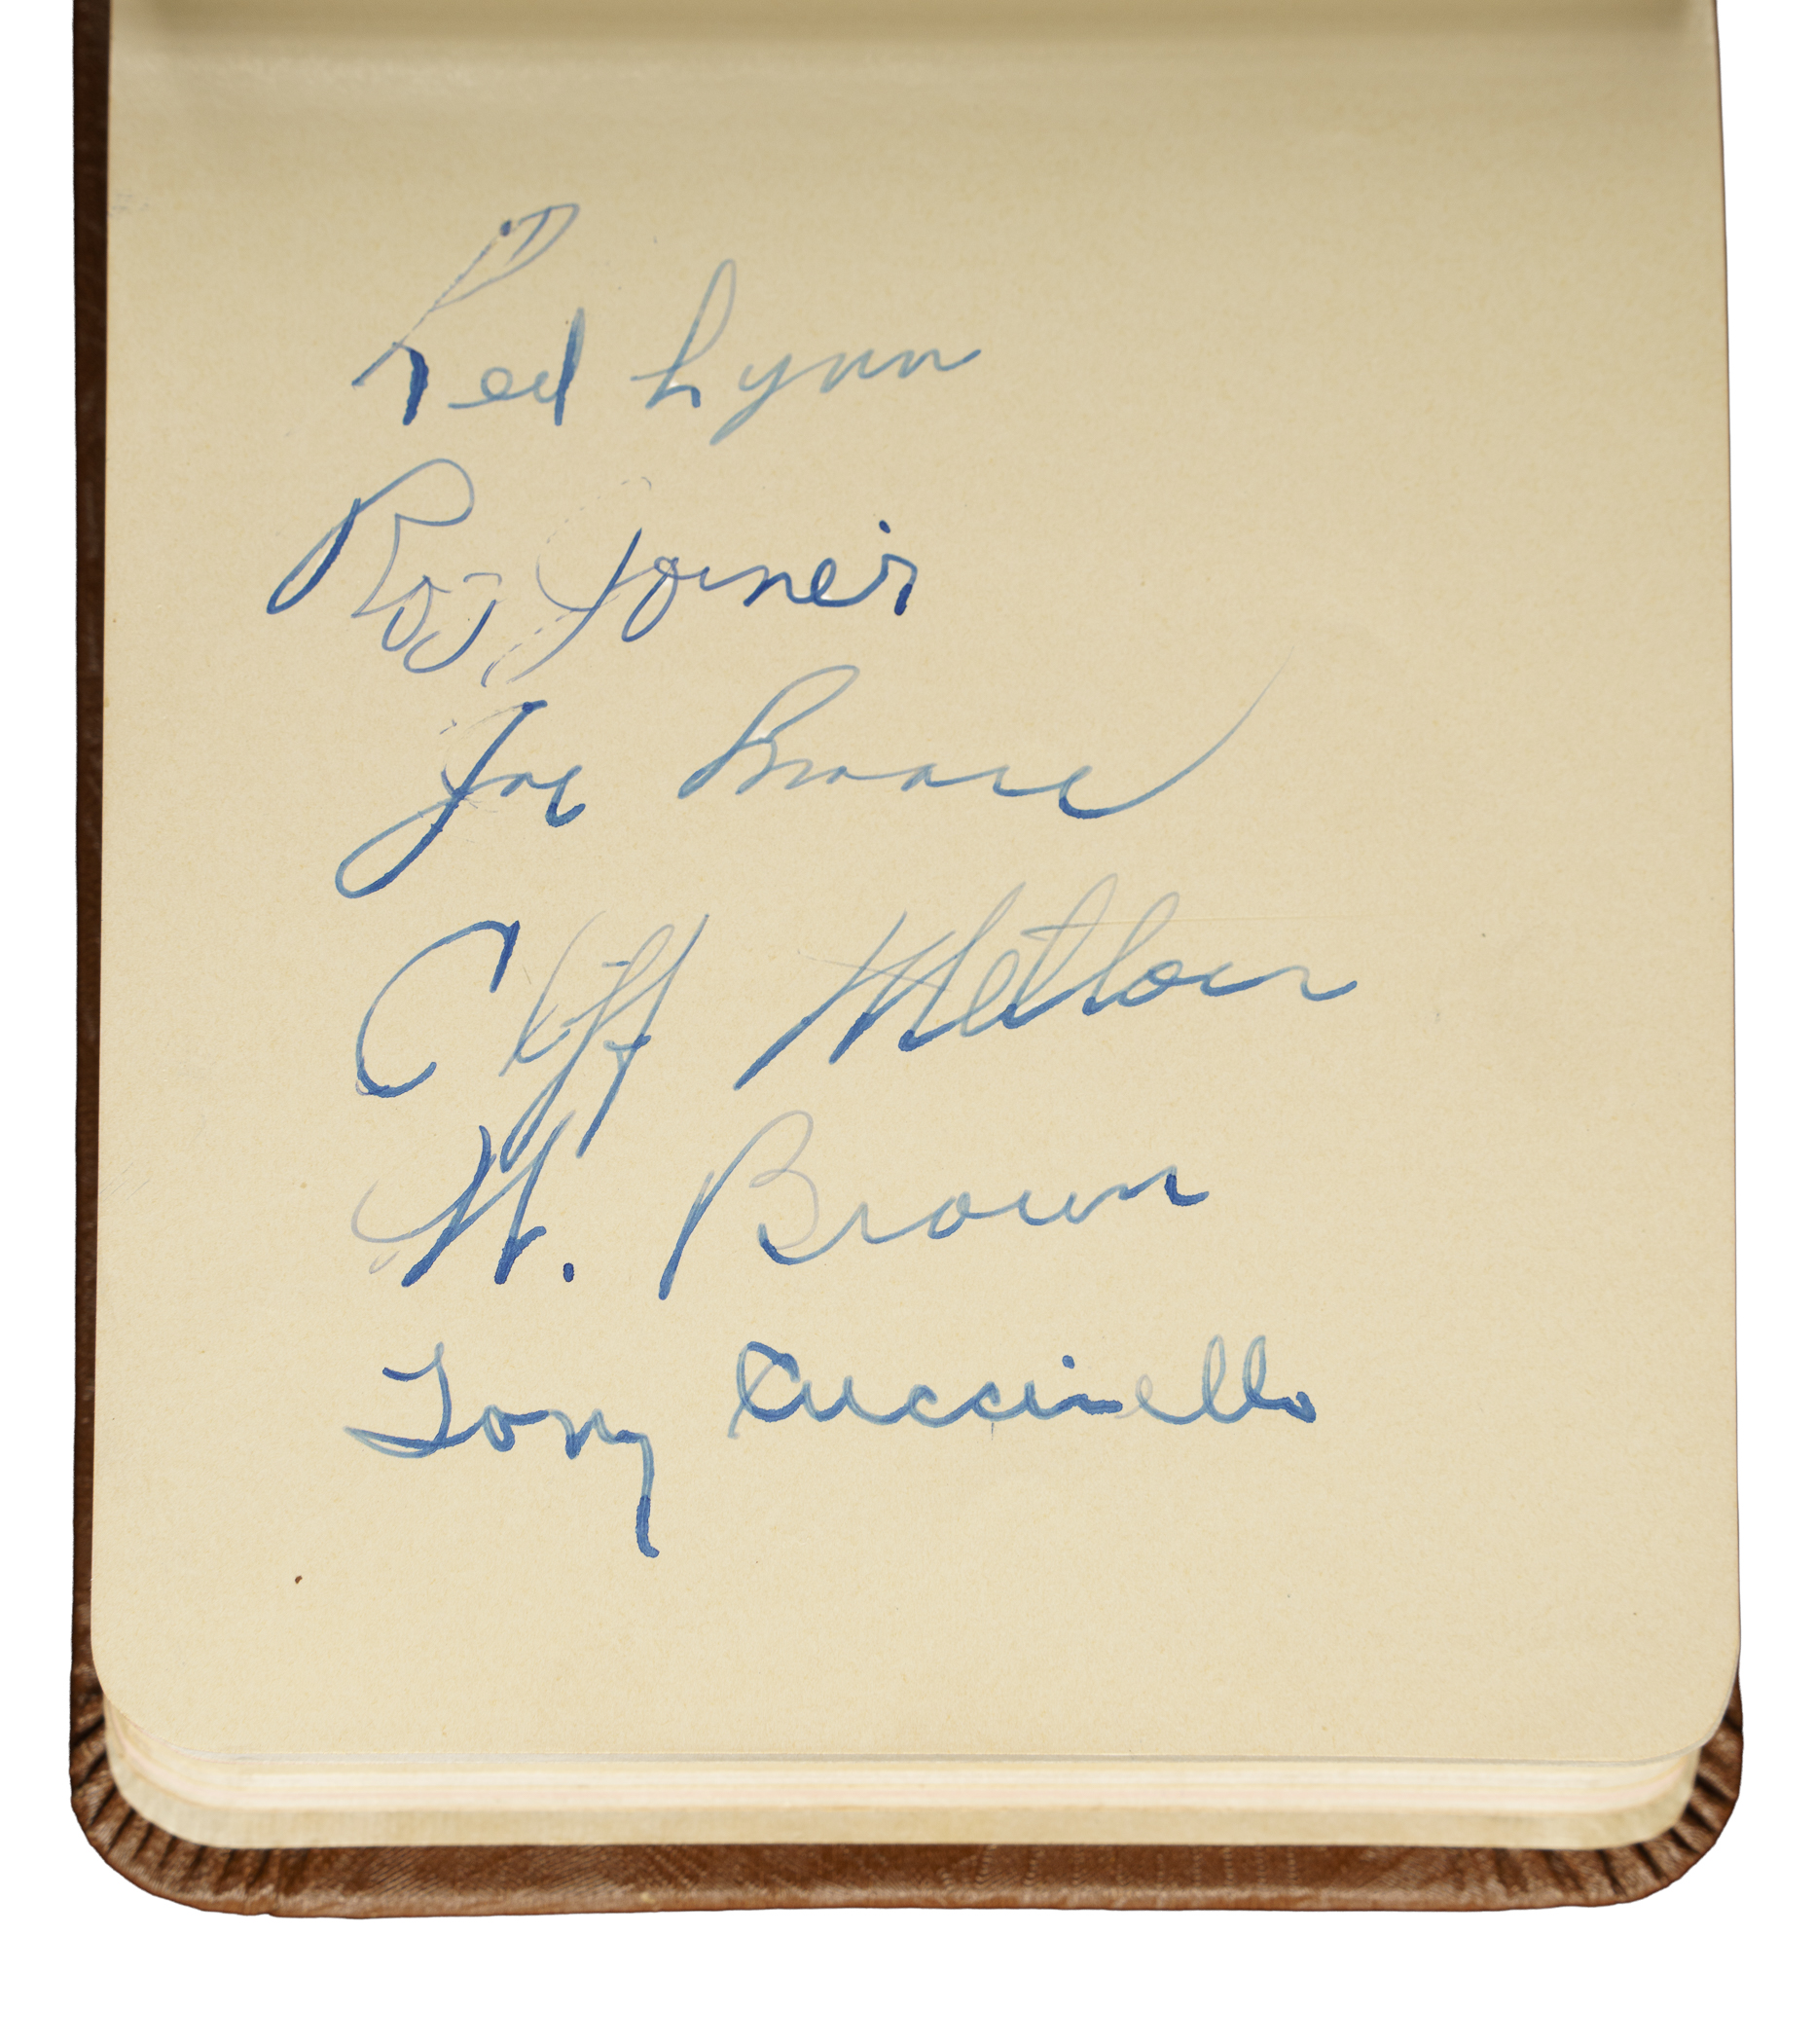 Red Lynn
Roy Joiner
Joe Moore
Cliff Melton
W. Brown
Tony Cuccinello